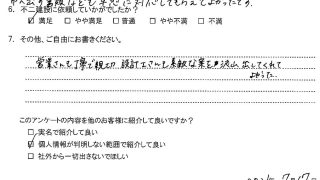 6. 不二建設に依頼していかがでしたか？
☑ 満足 □ やや満足 □ 普通 □ やや不満 □ 不満
7. その他、ご自由にお書きください。
営業さんも丁寧で親切 設計士さんも素敵な案を沢山出してくれて
よかった。
このアンケートの内容を他のお客様に紹介して良いですか？
□ 実名で紹介して良い
☑ 個人情報が判明しない範囲で紹介して良い
□ 社外から一切出さないでほしい